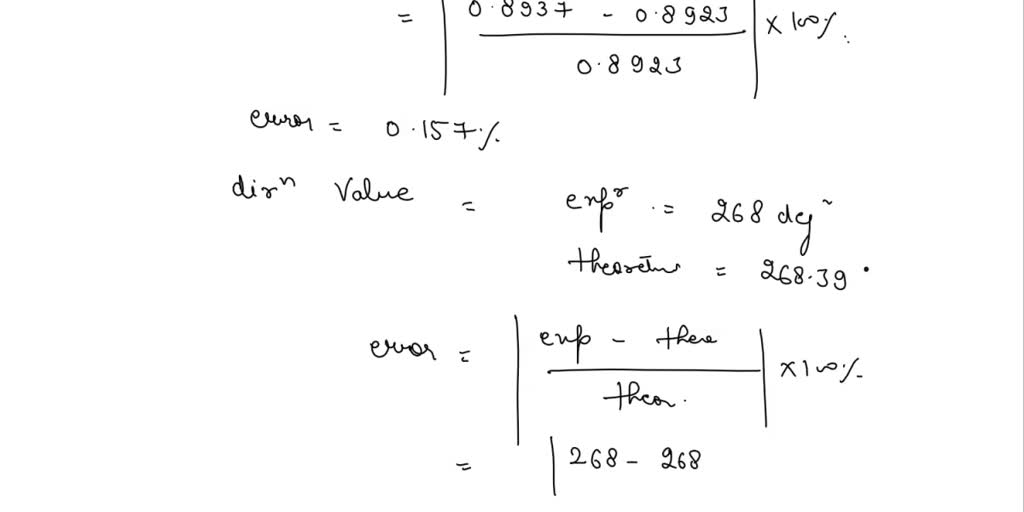 = | 0.8937 - 0.8923 / 0.8923 | × 100%
error = 0.157%
dirⁿ Value = expʳ = 268 deg
= 268.39°
error = | exp - theo / theor. | × 100%
= | 268 - 268